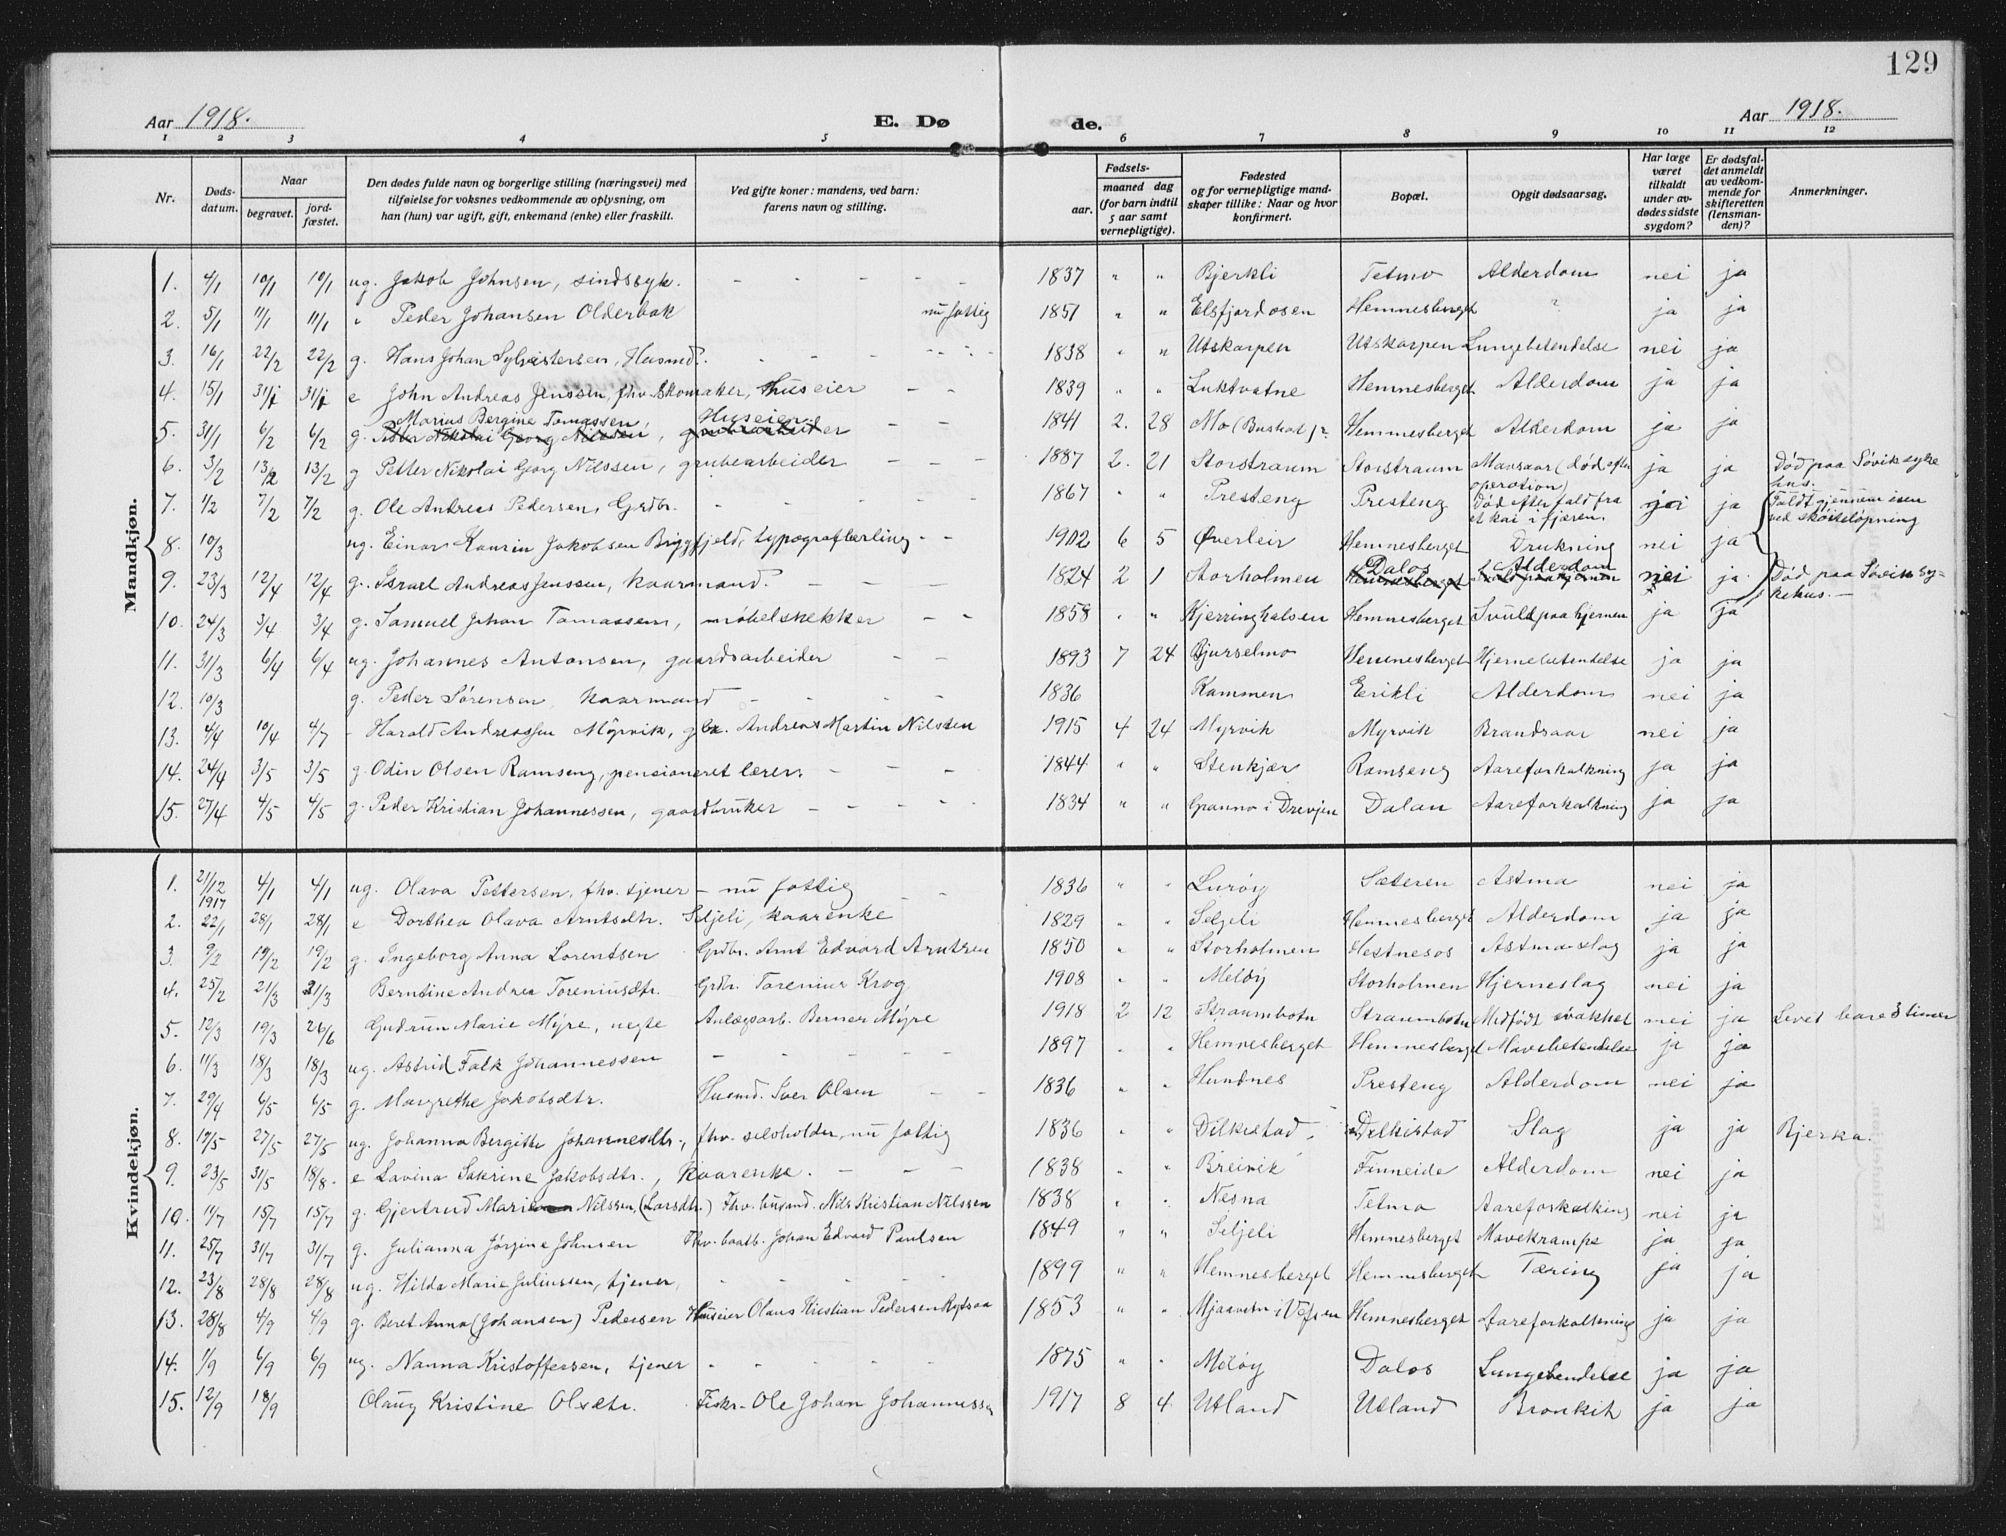 129
Aar 1918. E. Døde. Aar 1918.
1 2 3 4 5 6 7 8 9 10 11 12
Nr. Dødsdatum. Naar begravet. jordfæstet. Den dødes fulde navn og borgerlige stilling (næringsvei) med tilføielse for voksnes vedkommende av oplysning, om han (hun) var ugift, gift, enkemand (enke) eller fraskilt. Ved gifte koner: mandens, ved barn: farens navn og stilling. Fødsels- aar. maaned dag (for barn indtil 5 aar samt vernepligtige). Fødested og for vernepligtige mandskaper tillike: Naar og hvor konfirmert. Bopæl. Opgit dødsaarsag. Har læge været tilkaldt under avdødes sidste sygdom? Er dødsfaldet anmeldt av vedkommende for skifteretten (lensmanden)? Anmerkninger.
Mandkjøn.
1. 4/1 10/1 10/1 ug. Jakob Johnsen, sindssyk. - - - - - 1837 " " Bjerkli Tetmo Alderdom nei ja
2. 5/1 11/1 11/1 " Peder Johansen Olderbak nu fattig 1851 " " Elsfjordosen Hemnesberget ? ja ja
3. 16/1 22/2 22/2 g. Hans Johan Sylvestersen, Husmd. - - - - 1838 " " Utskarpen Utskarpen Lungebetendelse nei ja
4. 15/1 31/1 31/1 e John Andreas Jenssen, fhv. skomaker, huseier - - 1839 " " Luktvatne Hemnesberget Alderdom ja ja
5. 31/1 6/2 6/2 g. Marius Bergine Tomassen, Huseier Petter Nikolai Georg Nilssen, grubearbeider - - 1841 2. 28 Mo (Bustad)? Hemmesberget Alderdom ja ja
6. 3/2 13/2 13/2 g Petter Nikolai Georg Nilssen, grubearbeider - - - 1887 2. 21 Storstraum Storstraum Mavsaar (død efter operation) ja ja Død paa Søvik sykehus.
7. 1/2 7/2 7/2 g. Ole Andreas Pedersen, Grdbr. - - - 1867 " " Presteng Presteng Død efter fald fra et kai i fjæren. ja Faldt gjennem isen ved skøiteløpning
8. 10/3 ug. Einar Kaurin Jakobsen Bryggfjeld, typograflærling - - 1902 6 5 Øverleir Hemnesberget Drukning nei ja
9. 23/3 12/4 12/4 g. Israel Andreas Jenssen, kaarmand. - - - 1824 2 1 Storholmen Dalos Hemnesberget Alderdom nei ja Død paa Søvik sykehus. -
10. 24/3 3/4 3/4 g. Samuel Johan Tomassen, møbelsnekker - - 1858 " " Kjerringhalsen Hemnesberget Svulst paa hjernen ja ja
11. 31/3 6/4 6/4 ug. Johannes Antonsen, gaardsarbeider - - 1893 7 24 Bjurselmo Hemnesberget Hjernebetendelse ja ja
12. 10/3 g. Peder Sørensen kaarmand - - - - 1836 Kammen Erikli Alderdom nei ja
13. 4/4 10/4 4/7 - Harald Andreassen Myrvik, gbr. Andreas Martin Nilssen 1915 4 24 Myrvik Myrvik Brandsaar nei ja
14. 24/4 3/5 3/5 g. Odin Olsen Ramseng, pensioneret lærer - - - 1844 " " Stenkjær Ramseng Aareforkalkning ja ja
15. 27/4 4/5 4/5 g. Peder Kristian Johannessen, gaardbruker - - - - 1834 " " Granmo i Drevjen Dalan Aareforkalkning ja ja
Kvindekjøn.
1. 21/12 1917 4/1 4/1 ug. Olava Pettersen, fhv. tjener - nu fattig - - 1836 " " Lurøy Sæteren Astma nei ja
2. 22/1 28/1 28/1 e Dorthea Olava Arntsdtr. Seljeli, kaarenke 1829 " " Seljeli Hemnesberget Alderdom ja ja
3. 9/2 19/2 19/2 g. Ingeborg Anna Lorentsen Grdbr. Arnt Edvard Arntzen 1850 " " Storholmen Hestnesos Astma slag ja ja
4. 25/2 21/3 21/3 Berntine Andrea Toreniusdtr. Grdbr. Torenius Krog 1908 " " Meløy Storholmen Hjerneslag nei ja
5. 12/3 19/3 26/6 Gudrun Marie Myre, uegte Anlægsarb. Berner Myre 1918 2 12 Straumbotn Straumbotn Medfødt svakhet nei ja Levet bare 3 timer
6. 11/3 18/3 18/3 ug. Astrid Falk Johannessen - - - - - 1897 " " Hemnesberget Hemnesberget Mavebetendelse ja ja
7. 29/4 6/5 6/5 g. Margrethe Jakobsdtr. Husmd. Iver Olsen - - 1836 " " Hundnes Presteng Alderdom nei ja
8. 19/5 27/5 27/5 ug. Johanna Bergitte Johannesdtr., fhv. selvholder, nu fattig 1836 " " Dilkestad Dilkistad Slag ja ja Bjerka.
9. 23/5 31/5 18/8 - e Lavina Sakrine Jakobsdtr., Kaarenke. - - - 1838 " " Breivik Finneide Alderdom nei ja
10. 11/7 15/7 15/7 g. Gjertrud Marie Nilssen, (Larsdtr.) Fhv. husmd. Nils Kristian Nilssen 1838 " " Nesna Tetmo Aareforkalkning nei ja
11. 25/7 31/7 31/7 g. Julianna Jørgine Johnsen Fhv. baatb. Johan Edvard Paulsen 1849 " " Seljeli Hemnesberget Mavekrampe ja ja
12. 23/8 28/8 28/8 ug. Hilda Marie Juliussen, tjener, - - - - 1899 " " Hemnesberget Hemnesberget Tæring ja ja
13. 28/8 4/9 4/9 g. Beret Anna (Johansen) Pedersen Huseier Olaus Kristian Pedersen Rydsaa 1853 " " Mjaavatn i Vefsen Hemnesberget Aareforkalkning ja ja
14. 1/9 6/9 6/9 ug. Nanna Kristoffersen, tjener - - - - - 1875 " " Meløy Dalos Lungebendelse ja ja
15. 12/9 18/9 Olaug Kristine Olsdtr. Fiskr. Ole Johan Johannessen 1917 8 4 Utland Utland Bronkit ja ja